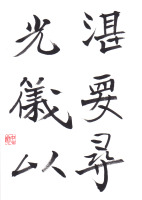 湛要尋
光儀以